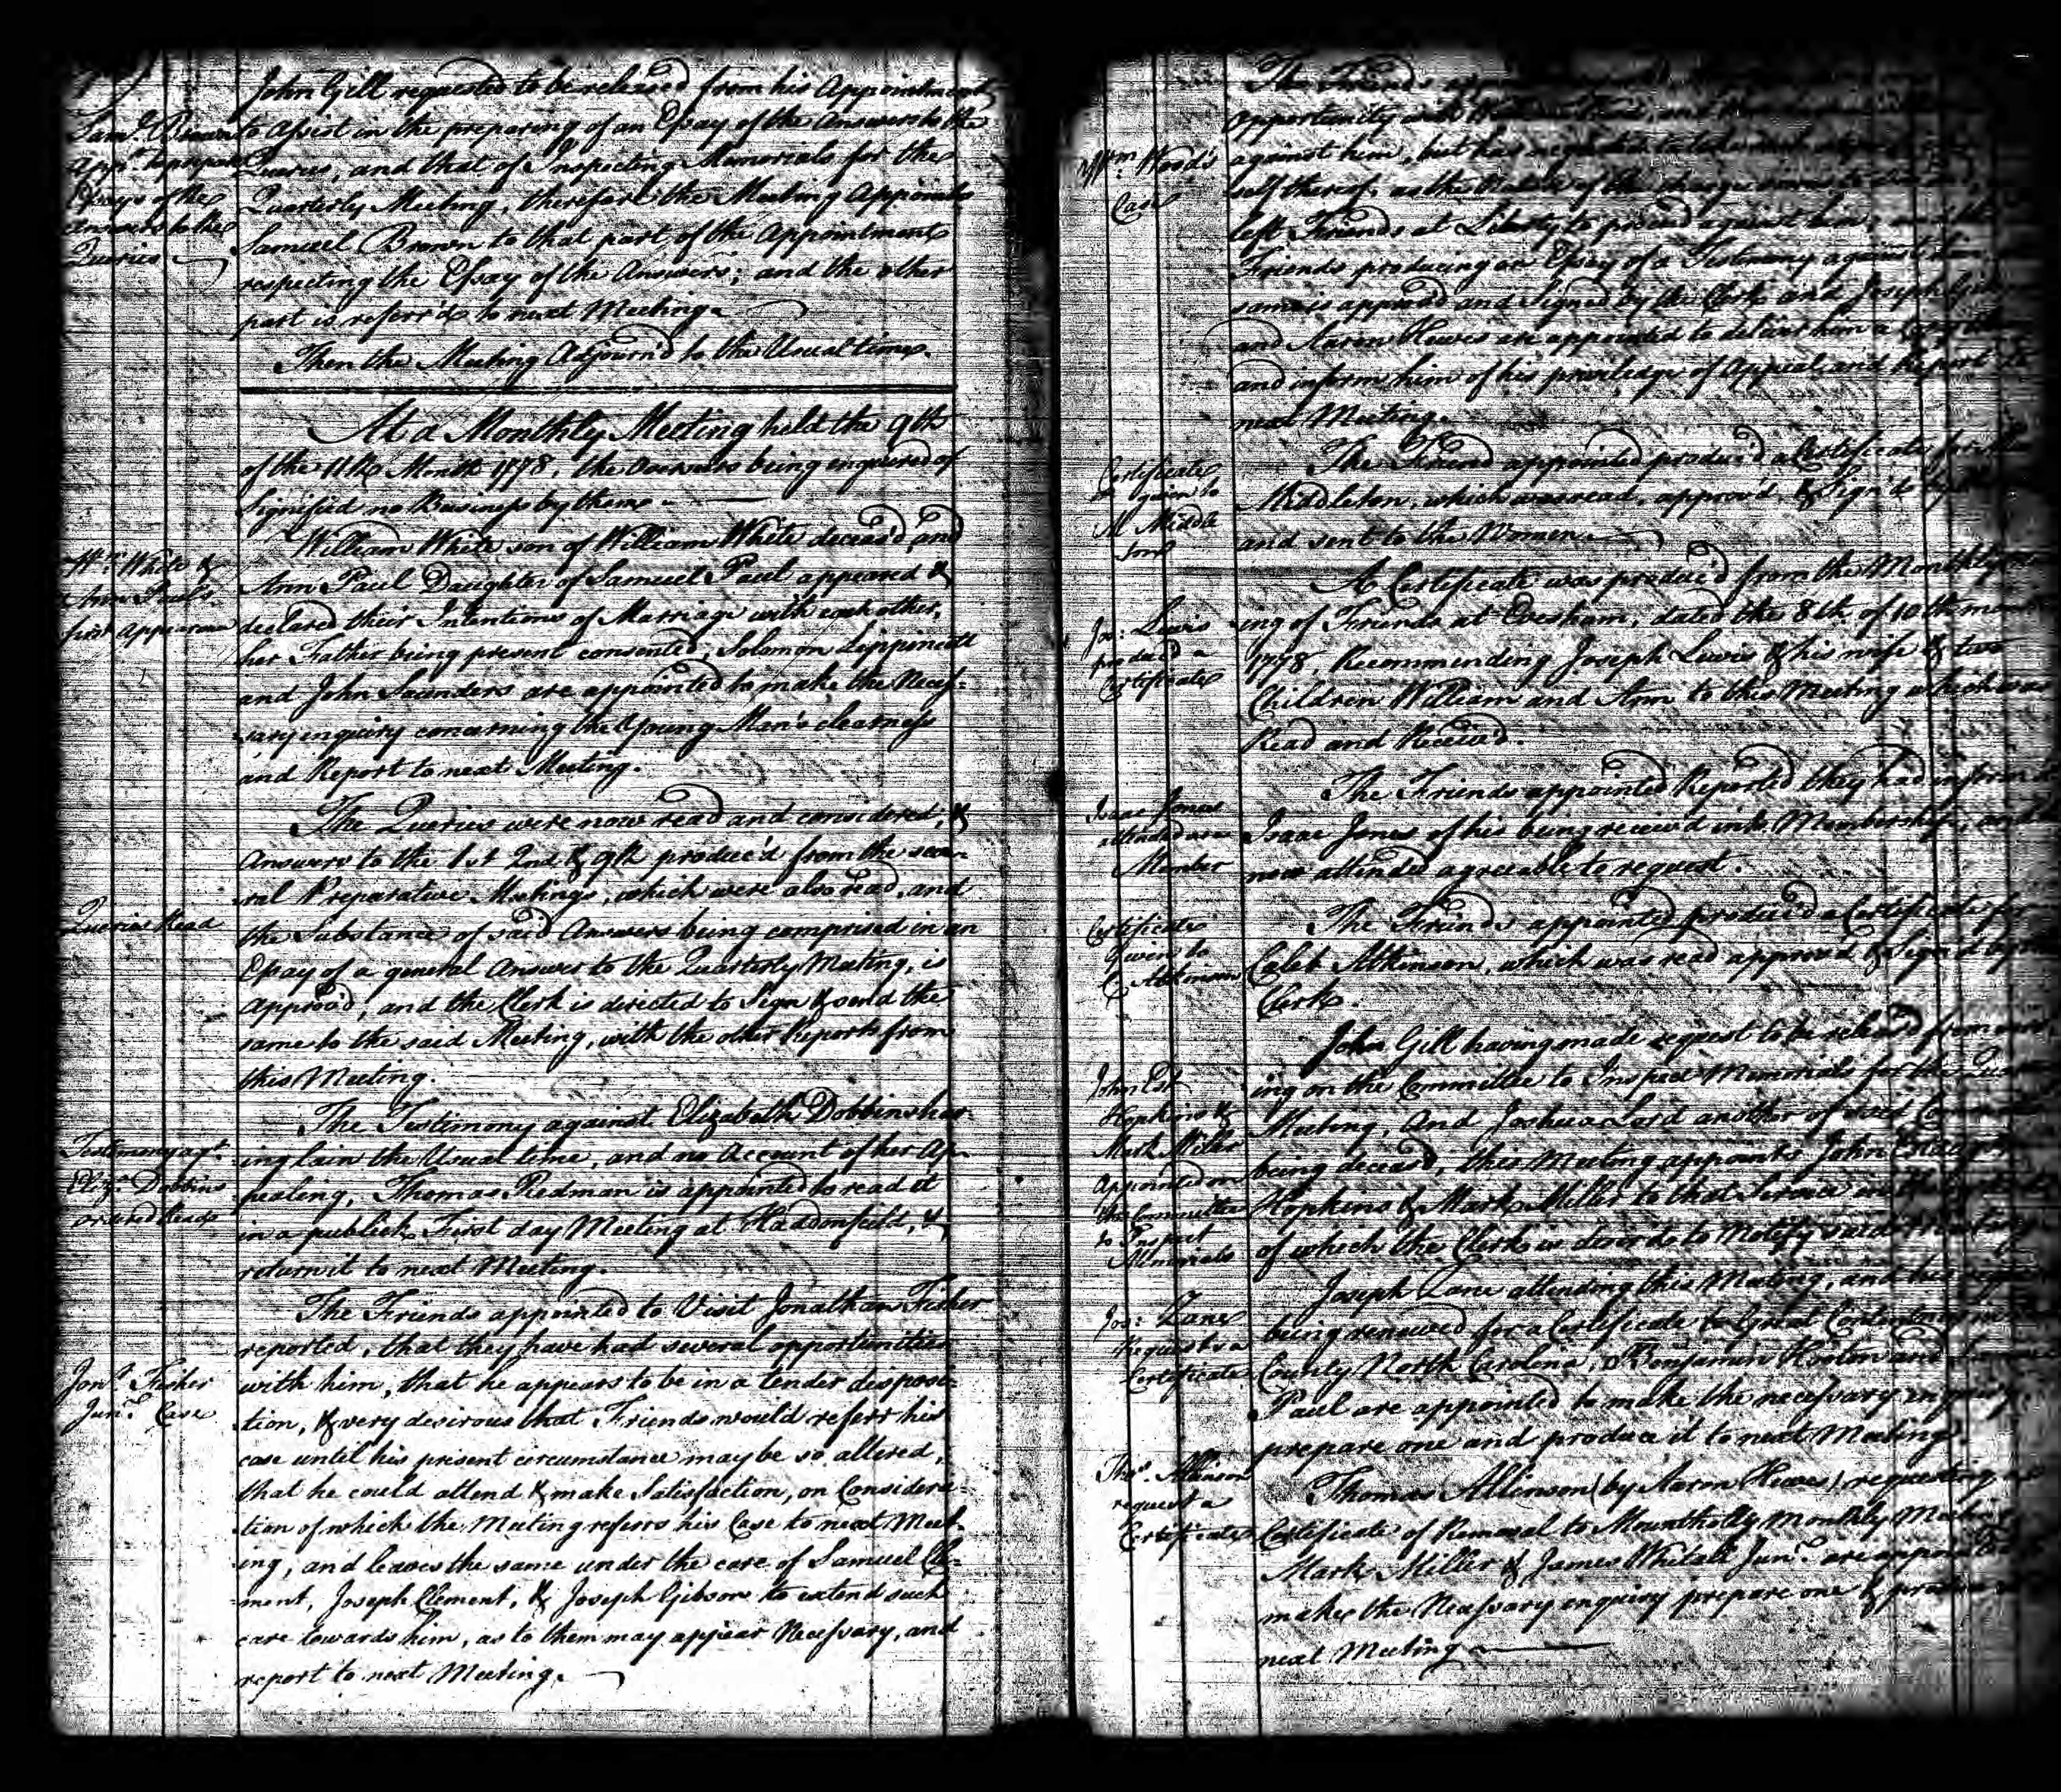 John Gill requested to be released from his Appointment
Sam.l Brown
to Assist in the preparing of an Essay of the Answers to the
app.d to prepare
Queries, and that of Inspecting Memorials for the
Essays of the
Quarterly Meeting, therefore the Meeting Appoints
answers to the
Samuel Brown to that part of the Appointment
Queries
respecting the Essay of the Answers; and the other
part is referr'd to next Meeting.
Then the Meeting Adjourn'd to the Usual time.
At a Monthly Meeting held the 9th
of the 11th Month 1778, the Overseers being enquired of
Signified no Business by them
William White son of William White deceas'd, and
Wm. White &
Ann Paul Daughter of Samuel Paul appeared &
Ann Paul's
declared their Intentions of Marriage with each other,
first appearance
her Father being present consented, Solomon Lippincott
and John Saunders are appointed to make the Neces-
sary enquiry concerning the Young Man's clearness
and Report to next Meeting.
The Queries were now read and considered, &
Answers to the 1st 2nd & 9th produc'd from the seve-
ral Preparative Meetings, which were also read, and
Queries Read
the Substance of said Answers being comprised in an
Essay of a general Answer to the Quarterly Meeting, is
approv'd, and the Clerk is directed to Sign & send the
same to the said Meeting, with the other Reports from
this Meeting.
The Testimony against Elizabeth Dobbins hav-
Testimony ag.t
ing lain the Usual time, and no Account of her Ap-
Eliz.a Dobbins
pealing, Thomas Redman is appointed to read it
ordered Read
in a publick First day Meeting at Haddonfield, &
return it to next Meeting.
The Friends appointed to Visit Jonathan Fisher
reported, that they have had several opportunities
Jon.n Fisher
with him, that he appears to be in a tender disposi-
Jun.r Case
tion, & very desirous that Friends would referr his
case until his present circumstance may be so altered,
that he could attend & make Satisfaction, on Considera-
tion of which the Meeting referrs his Case to next Meet-
ing, and leaves the same under the care of Samuel Cle-
ment, Joseph Clement, & Joseph Gibson to extend such
care towards him, as to them may appear Necessary, and
report to next Meeting.
The Friends
opportunity with
Wm. Wood's
against him, but
Case
self thereof, as the
left Friends at Liberty to proceed against him, and the
Friends producing an Essay of a Testimony against him
same is approved and Signed by the Clerk and Joseph
and Aaron Hewes are appointed to deliver him a Copy
and inform him of his priviledge of Appeal and Report to
next Meeting.
Certificate
The Friend appointed produc'd a Certificate for
given to
Middleton, which was read, approv'd, & Sign'd by
M Middle
ton
and sent to the Women.
A Certificate was produc'd from the Monthly
Jos: Lewis
ing of Friends at Evesham, dated the 8th of 10th month
produc'd a
1778, Recommending Joseph Lewis & his wife & two
Certificate
Children William and Ann to this Meeting which was
Read and Receiv'd.
The Friends appointed Reported they had inform'd
Isaac Jones
attended as a
Isaac Jones of his being receiv'd into Membership, and
Member
now attended agreeable to request.
Certificate
The Friends appointed produc'd a Certificate for
Given to
Caleb Atkinson, which was read approv'd & Sign'd by
C. Atkinson
Clerk.
John Gill having made request to be releas'd from
John Est.
ing on the Committee to Inspect Memorials for the
Hopkins &
Meeting, And Joshua Lord another of said
Mark Miller
being deceas'd, this Meeting appoints John Estaugh
Appointed on
the Committee
Hopkins & Mark Miller to that Service
to Inspect
of which the Clerk is desir'd to Notify said Meeting
Memorials
Joseph Zane attending this Meeting, and his
Jos: Zane
being renewed for a Certificate to Great Contentney in
Requests a
Certificate
County North Carolina, Benjamin Hooton and
Paul are appointed to make the necessary enquiry,
prepare one and produce it to next Meeting.
Tho.s Allinson
Thomas Allinson (by Aaron Hewes) requesting
request a
Certificate
Certificate of Removal to Mountholly Monthly Meeting
Mark Miller & James Whitall Jun.r are appointed
make the Necessary enquiry prepare one & produce
next Meeting